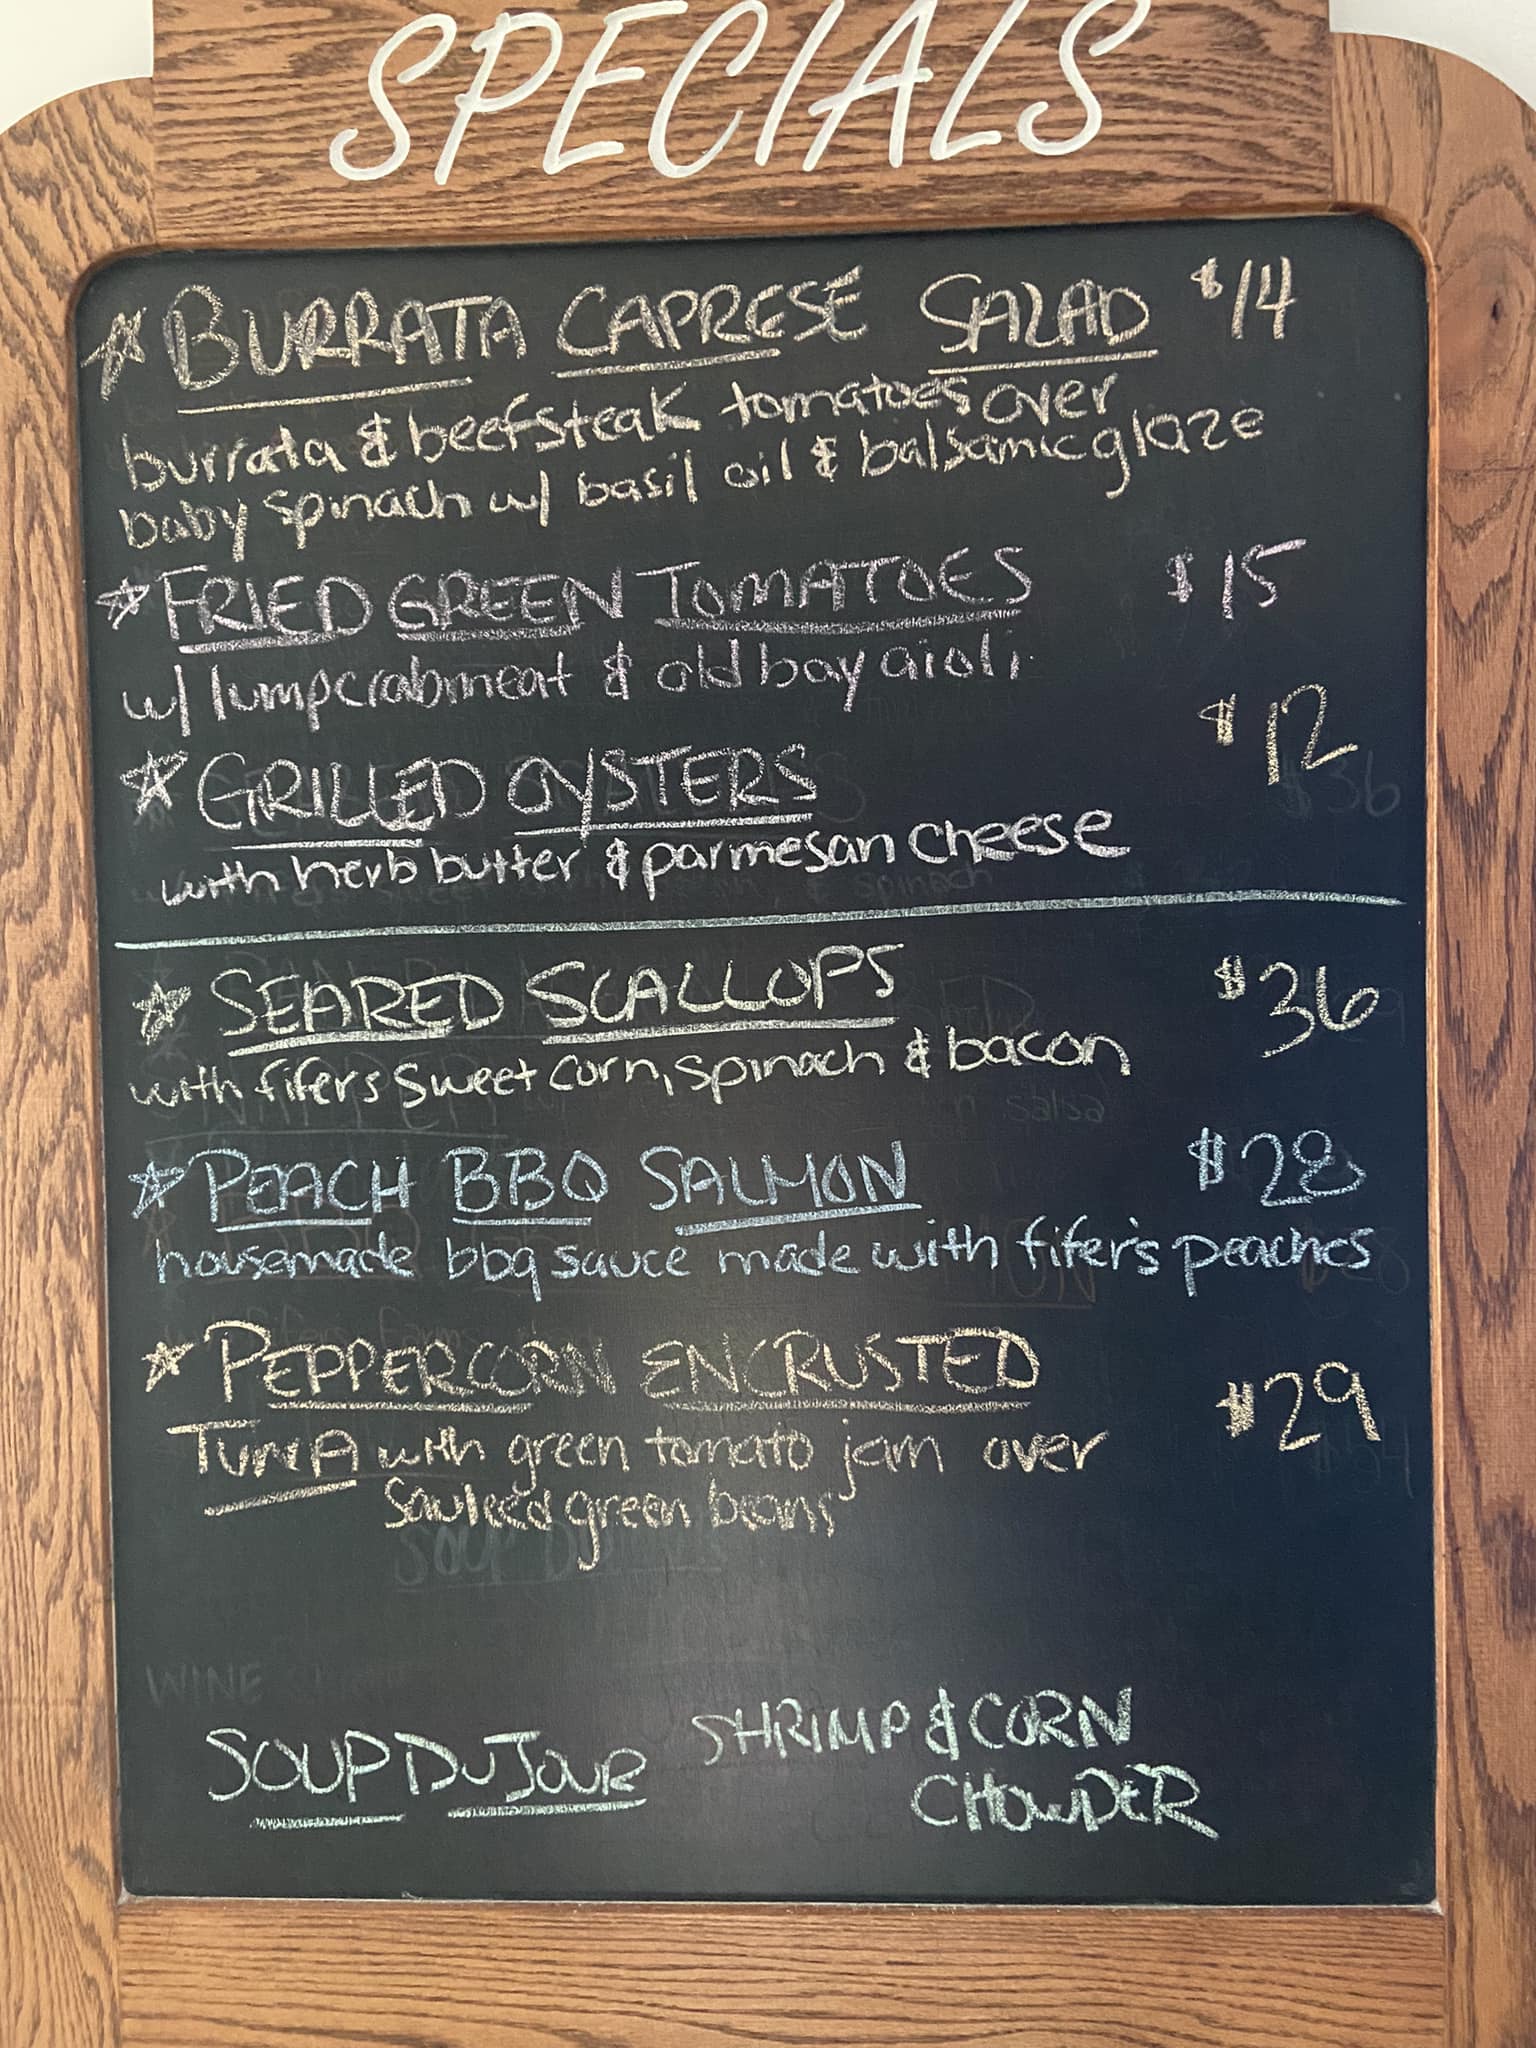 SPECIALS
☆ BURRATA CAPRESE SALAD $14
burrata & beefsteak tomatoes over
baby spinach w/ basil oil & balsamic glaze
☆ FRIED GREEN TOMATOES $15
w/ lump crabmeat & old bay aioli
☆ GRILLED OYSTERS $12
with herb butter & parmesan cheese
☆ SEARED SCALLOPS $36
with fifers sweet corn, spinach & bacon
☆ PEACH BBQ SALMON $28
housemade bbq sauce made with fifer's peaches
☆ PEPPERCORN ENCRUSTED $29
TUNA with green tomato jam over
green beans
SOUP DU JOUR SHRIMP & CORN
CHOWDER